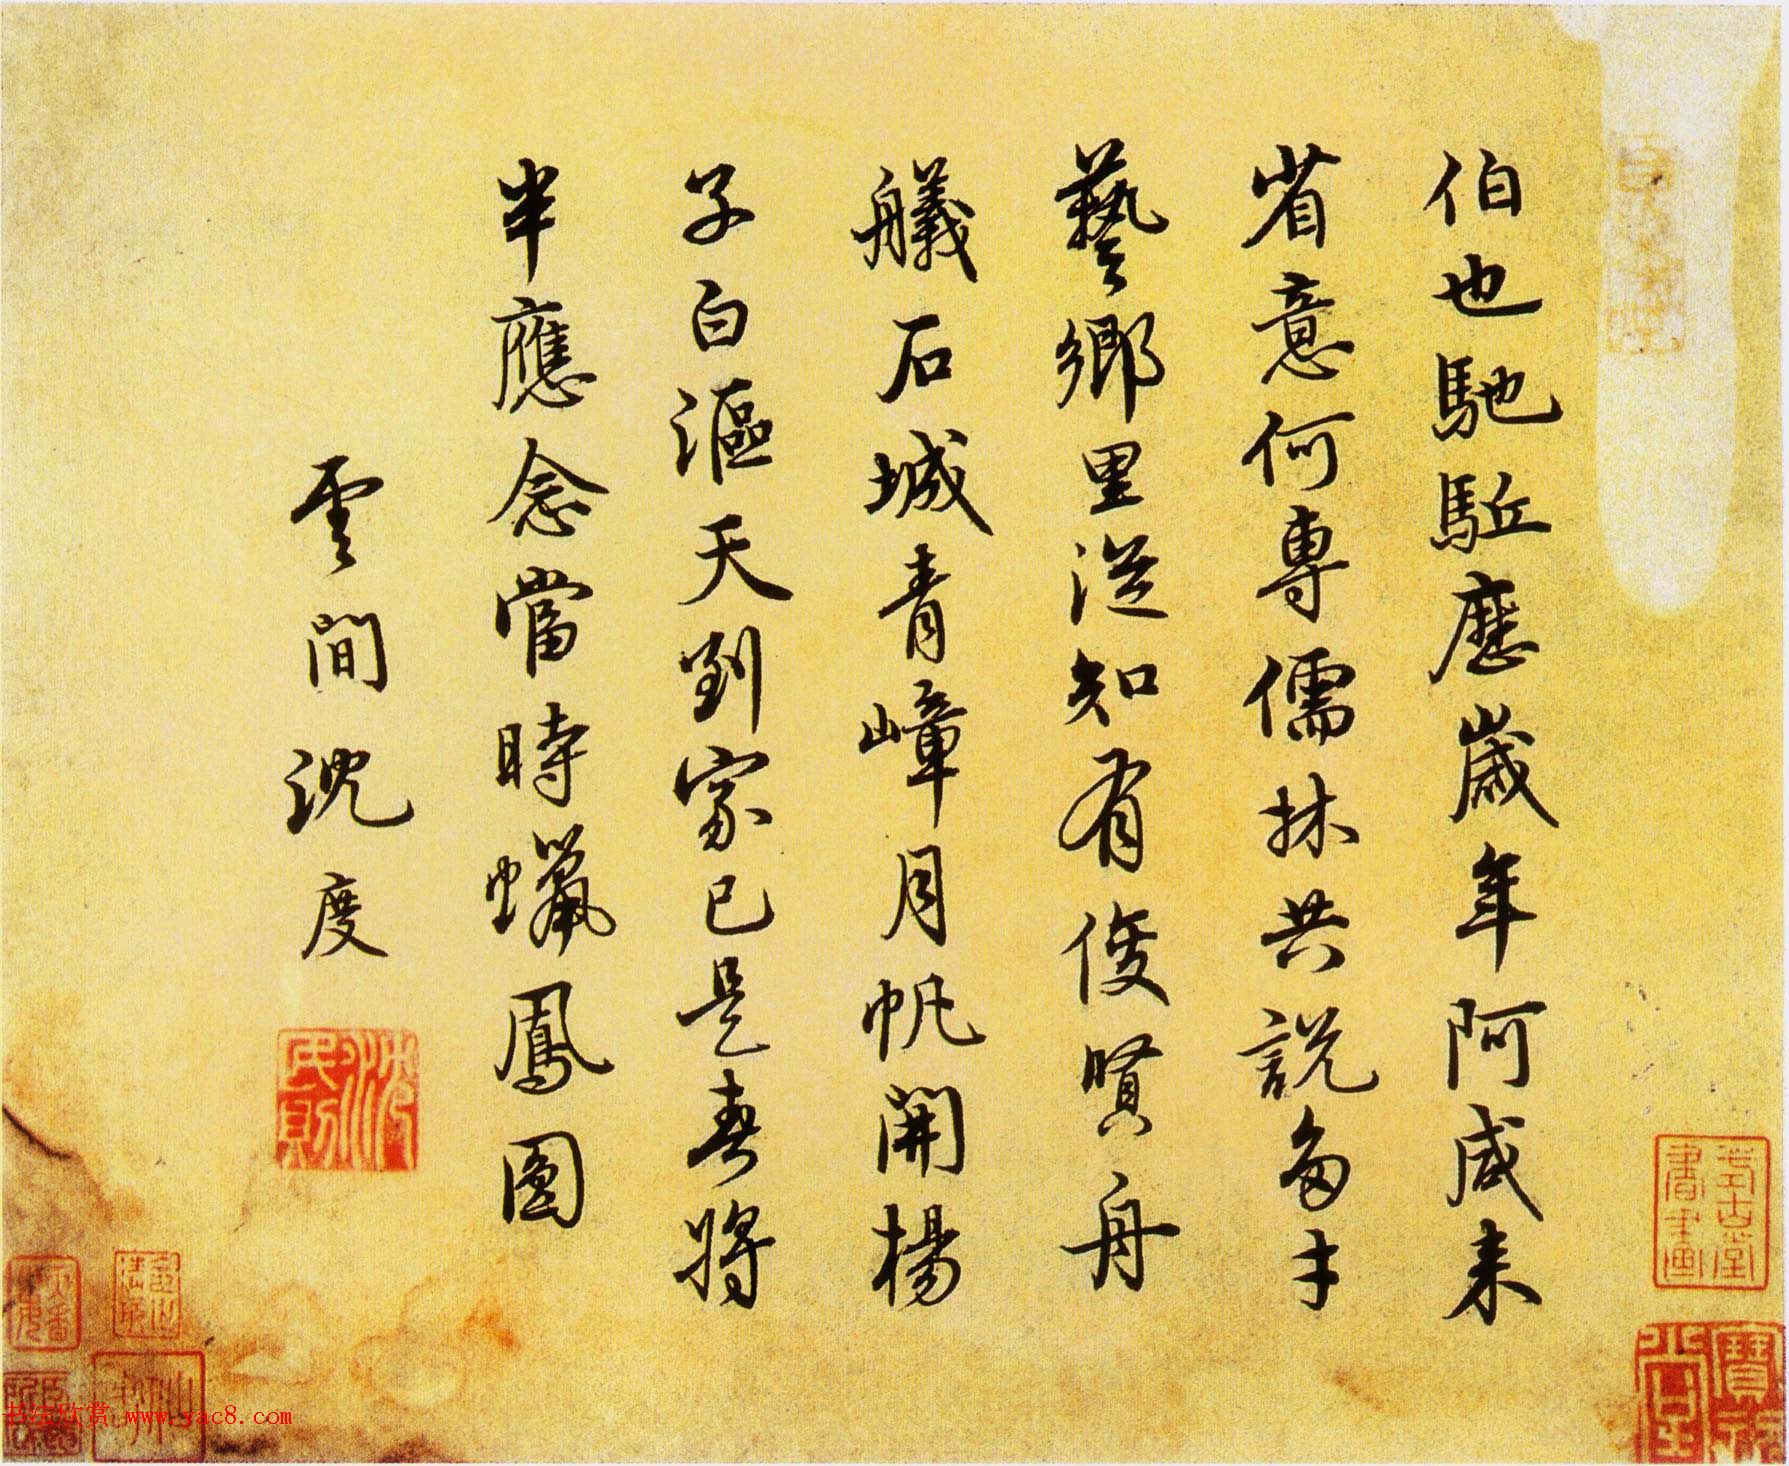 伯也馳駈歷歲年阿咸来
省意何專儒林共說多才
藝鄉里從知有俊賢舟
艤石城青嶂月帆開楊
子白漚天到家已是春將
半應念當時蠟鳳圖
雲間沈度
沈民則
书法欣赏 www.yac8.com